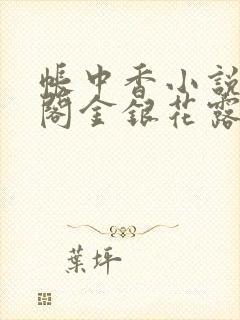 帳中香小說
閣金銀花露
葉坪